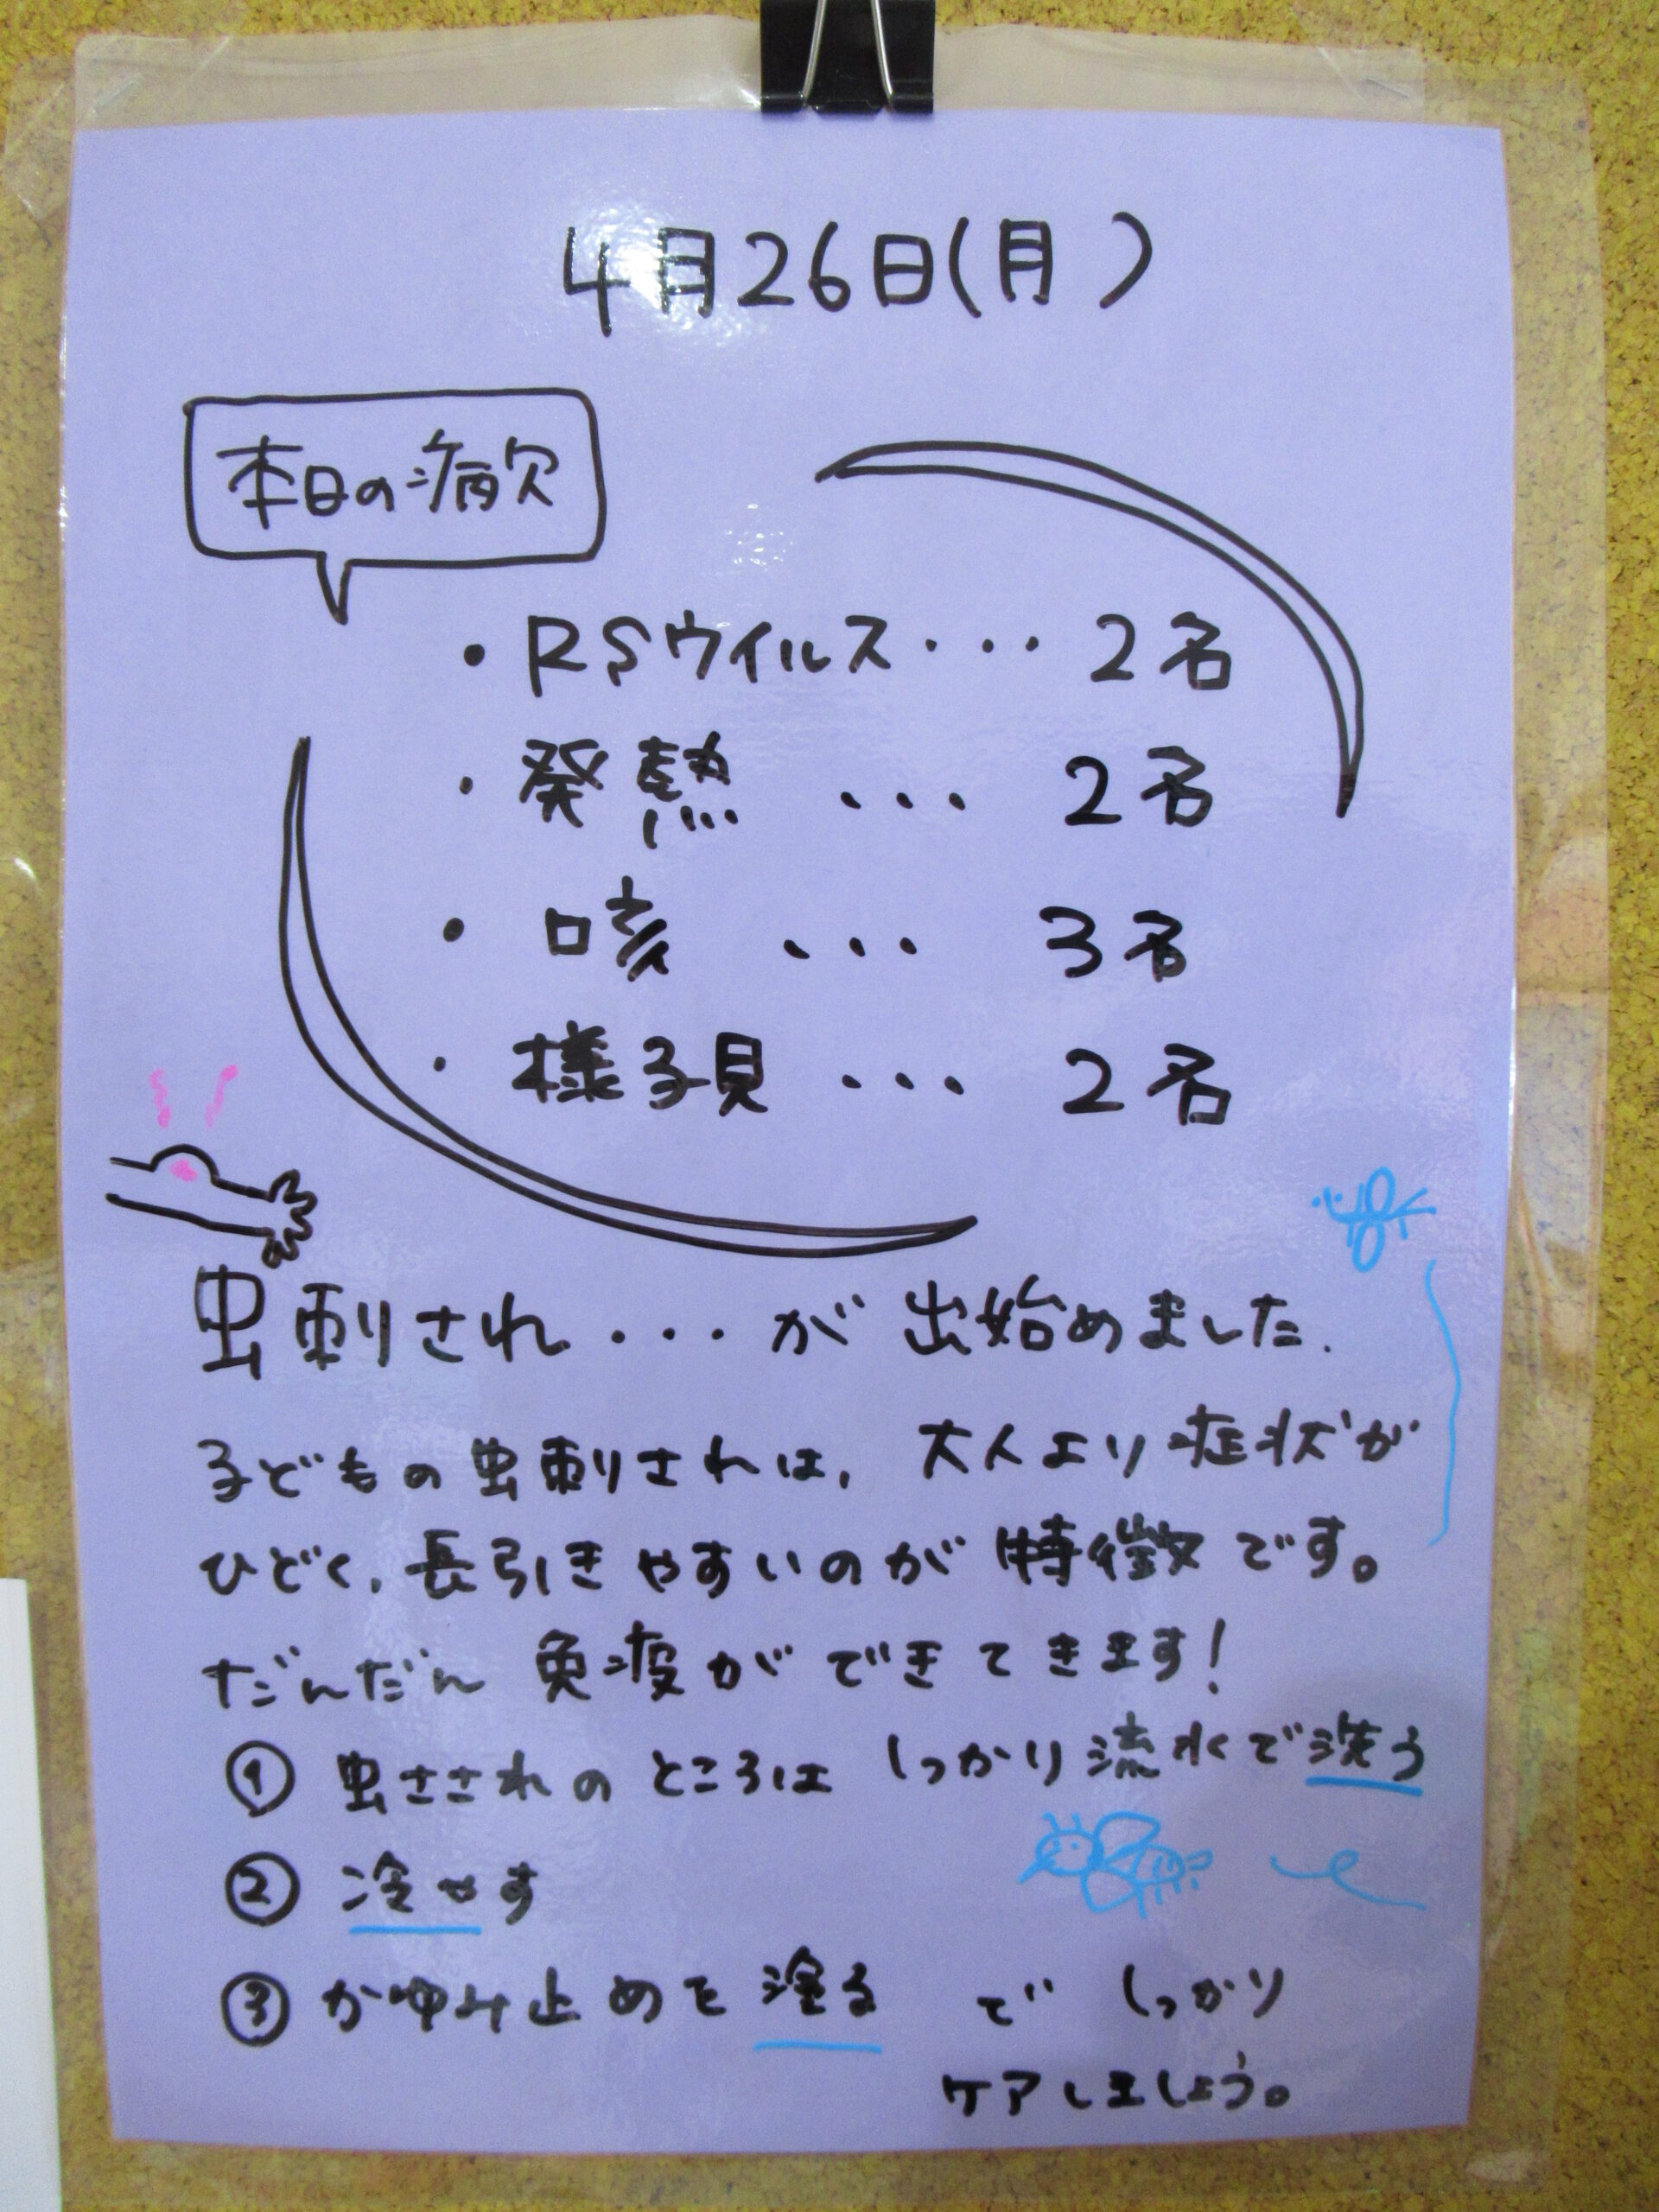 4月26日(月)
本日の病欠
・RSウイルス・・・2名
・発熱 ・・・ 2名
・咳 ・・・ 3名
・様子見 ・・・ 2名
虫刺され・・・が出始めました.
子どもの虫刺されは、大人より症状が
ひどく、長引きやすいのが特徴です。
だんだん免疫ができてきます!
① 虫さされのところはしっかり流水で洗う
② 冷やす
③ かゆみ止めを塗る で しっかり
ケアしましょう。